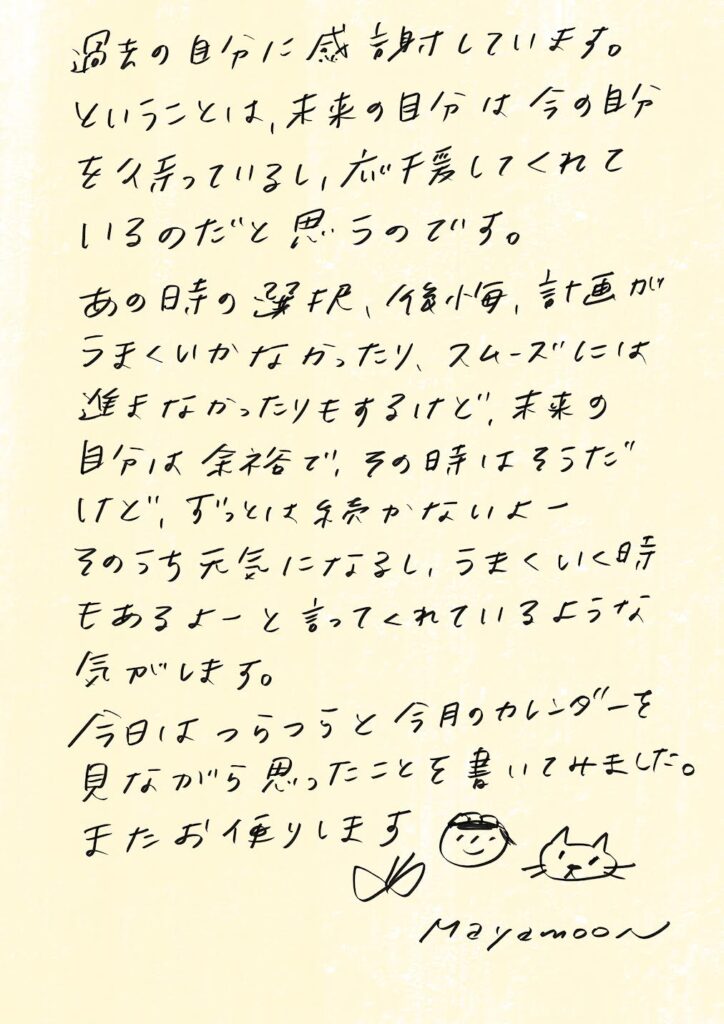 過去の自分に感謝しています。
ということは、未来の自分は今の自分
を待っているし、応援してくれて
いるのだと思うのです。
あの時の選択、後悔、計画が
うまくいかなかったり、スムーズには
進まなかったりもするけど、未来の
自分は余裕で、その時はそうだ
けど、ずっとは続かないよー
そのうち元気になるし、うまくいく時
もあるよーと言ってくれているような
気がします。
今日はつらつらと今月のカレンダーを
見ながら思ったことを書いてみました。
またお便りします
Mayamoon